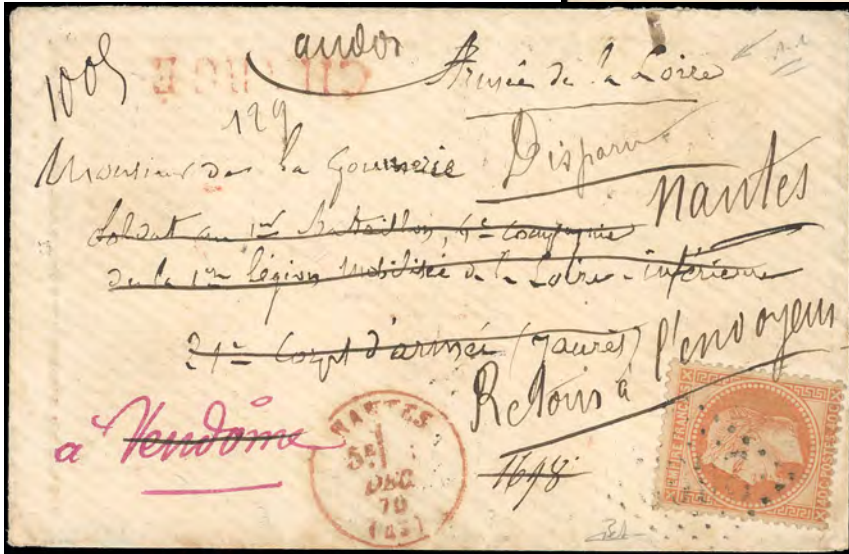 Armée de la Loire
1009
129
Monsieur de la Gournerie
Disparu
Nantes
Soldat au 1er Bataillon, 4e Compagnie
de la 1re légion mobilisée de la Loire-inférieure
21e Corps d'armée (Jaurès)
Retour à l'envoyeur
a Vendôme
1698
NANTES
5E
DEC
70
(42)
EMPIRE FRANÇAIS